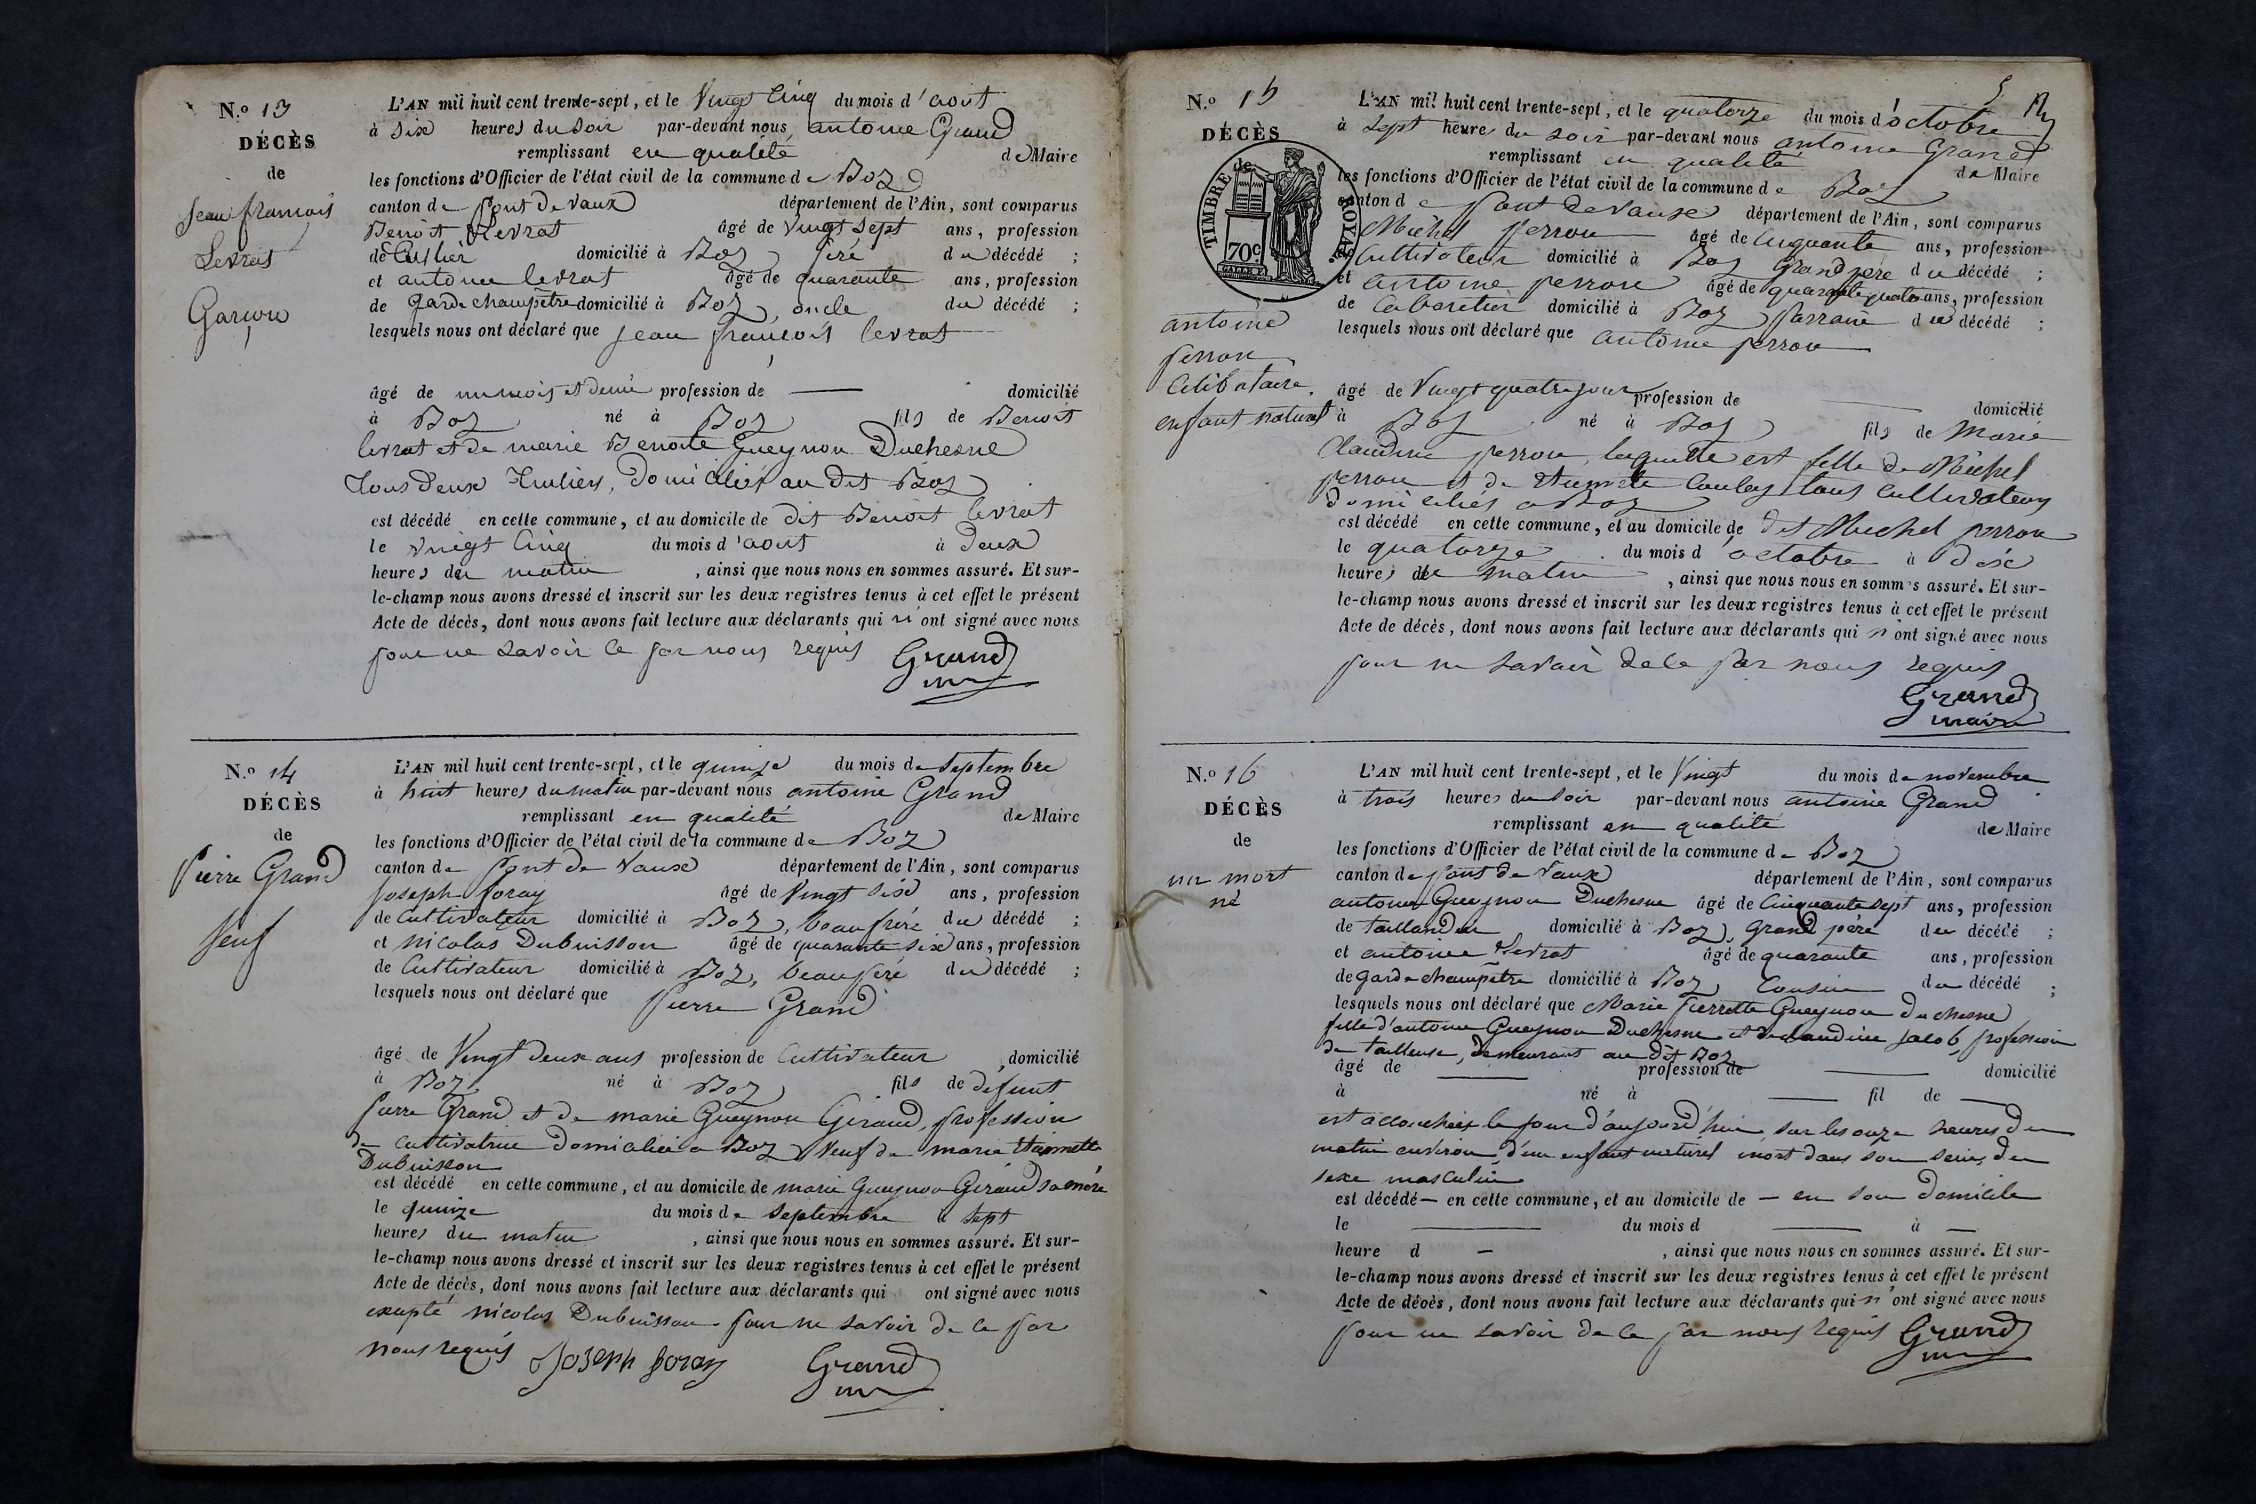 N.o 13
DÉCÈS
de
Jean françois
Levrat
Garçon
L'AN mil huit cent trente-sept, et le Vingt Cinq du mois d'aout
à six heures du soir par-devant nous antoine Grand
remplissant en qualité de Maire
les fonctions d'Officier de l'état civil de la commune de Boz
canton de pont de vaux département de l'Ain, sont comparus
Benoit Levrat âgé de vingt sept ans, profession
de domicilié à Boz, père du décédé ;
et antoine levrat âgé de quarante ans, profession
de garde champêtre domicilié à Boz, oncle du décédé ;
lesquels nous ont déclaré que jean françois levrat
âgé de un mois et demi profession de — domicilié
à Boz né à Boz fils de Benoit
levrat et de marie Benoite Gueynon Duchesne
tous deux domiciliés au dit Boz
est décédé en cette commune, et au domicile de dit Benoit levrat
le vingt cinq du mois d'aout à deux
heures du matin, ainsi que nous nous en sommes assuré. Et sur-
le-champ nous avons dressé et inscrit sur les deux registres tenus à cet effet le présent
Acte de décès, dont nous avons fait lecture aux déclarants qui n'ont signé avec nous
pour ne savoir ce par nous requis Grand
N.o 14
DÉCÈS
de
Pierre Grand
Veuf
L'AN mil huit cent trente-sept, et le quinze du mois de septembre
à huit heures du matin par-devant nous antoine Grand
remplissant en qualité de Maire
les fonctions d'Officier de l'état civil de la commune de Boz
canton de pont de vaux département de l'Ain, sont comparus
joseph foray âgé de vingt six ans, profession
de Cultivateur domicilié à Boz, beau frère du décédé ;
et nicolas Dubuisson âgé de quarante six ans, profession
de Cultivateur domicilié à Boz, beau père du décédé ;
lesquels nous ont déclaré que pierre Grand
âgé de Vingt deux ans profession de Cultivateur domicilié
à Boz né à Boz fils de défunt
pierre Grand et de marie Gueynon Giraud, profession
de cultivatrice domiciliée a Boz veuf de marie
Dubuisson
est décédé en cette commune, et au domicile de marie Gueynon Giraud sa mère
le quinze du mois de septembre à sept
heures du matin, ainsi que nous nous en sommes assuré. Et sur-
le-champ nous avons dressé et inscrit sur les deux registres tenus à cet effet le présent
Acte de décès, dont nous avons fait lecture aux déclarants qui ont signé avec nous
excepté nicolas Dubuisson pour ne savoir de ce par
nous requis Joseph foray Grand
5
N.o 15
DÉCÈS
de
TIMBRE ROYAL
70c
antoine
perron
Célibataire
enfant naturel
L'AN mil huit cent trente-sept, et le quatorze du mois d'octobre
à sept heures du soir par-devant nous antoine Grand
remplissant en qualité de Maire
les fonctions d'Officier de l'état civil de la commune de Boz
canton de pont de vaux département de l'Ain, sont comparus
Michel perron âgé de cinquante ans, profession
Cultivateur domicilié à Boz Grand père du décédé ;
et antoine perron âgé de quarante quatre ans, profession
de Cabaretier domicilié à Boz parrain du décédé ;
lesquels nous ont déclaré que antoine perron
âgé de Vingt quatre jour profession de — domicilié
à Boz né à Boz fils de Marie
Claudine perron, laquelle est fille de Michel
perron et de tous cultivateurs
domiciliés a Boz
est décédé en cette commune, et au domicile de dit Michel perron
le quatorze du mois d'octobre à dix
heures du matin, ainsi que nous nous en sommes assuré. Et sur-
le-champ nous avons dressé et inscrit sur les deux registres tenus à cet effet le présent
Acte de décès, dont nous avons fait lecture aux déclarants qui n'ont signé avec nous
pour ne savoir de ce par nous requis
Grand
maire
N.o 16
DÉCÈS
de
un mort
né
L'AN mil huit cent trente-sept, et le Vingt du mois de novembre
à trois heures du soir par-devant nous antoine Grand
remplissant en qualité de Maire
les fonctions d'Officier de l'état civil de la commune de Boz
canton de pont de vaux département de l'Ain, sont comparus
antoine Gueynon Duchesne âgé de Cinquante sept ans, profession
de taillandier domicilié à Boz, Grand père du décédé ;
et antoine Levrat âgé de quarante ans, profession
de garde champêtre domicilié à Boz Cousin du décédé ;
lesquels nous ont déclaré que Marie Pierrette Gueynon duchesne
fille d'antoine Gueynon Duchesne et de claudine jacob, profession
de tailleuse, demeurant au dit Boz
âgé de — profession de — domicilié
à né à — fil de —
est accouchée le jour d'aujourd'hui, sur les onze heures du
matin environ, d'un enfant naturel mort dans son sein, du
sexe masculin
est décédé — en cette commune, et au domicile de — en son domicile
le — du mois d — à —
heure d —, ainsi que nous nous en sommes assuré. Et sur-
le-champ nous avons dressé et inscrit sur les deux registres tenus à cet effet le présent
Acte de décès, dont nous avons fait lecture aux déclarants qui n'ont signé avec nous
pour ne savoir de ce par nous requis Grand